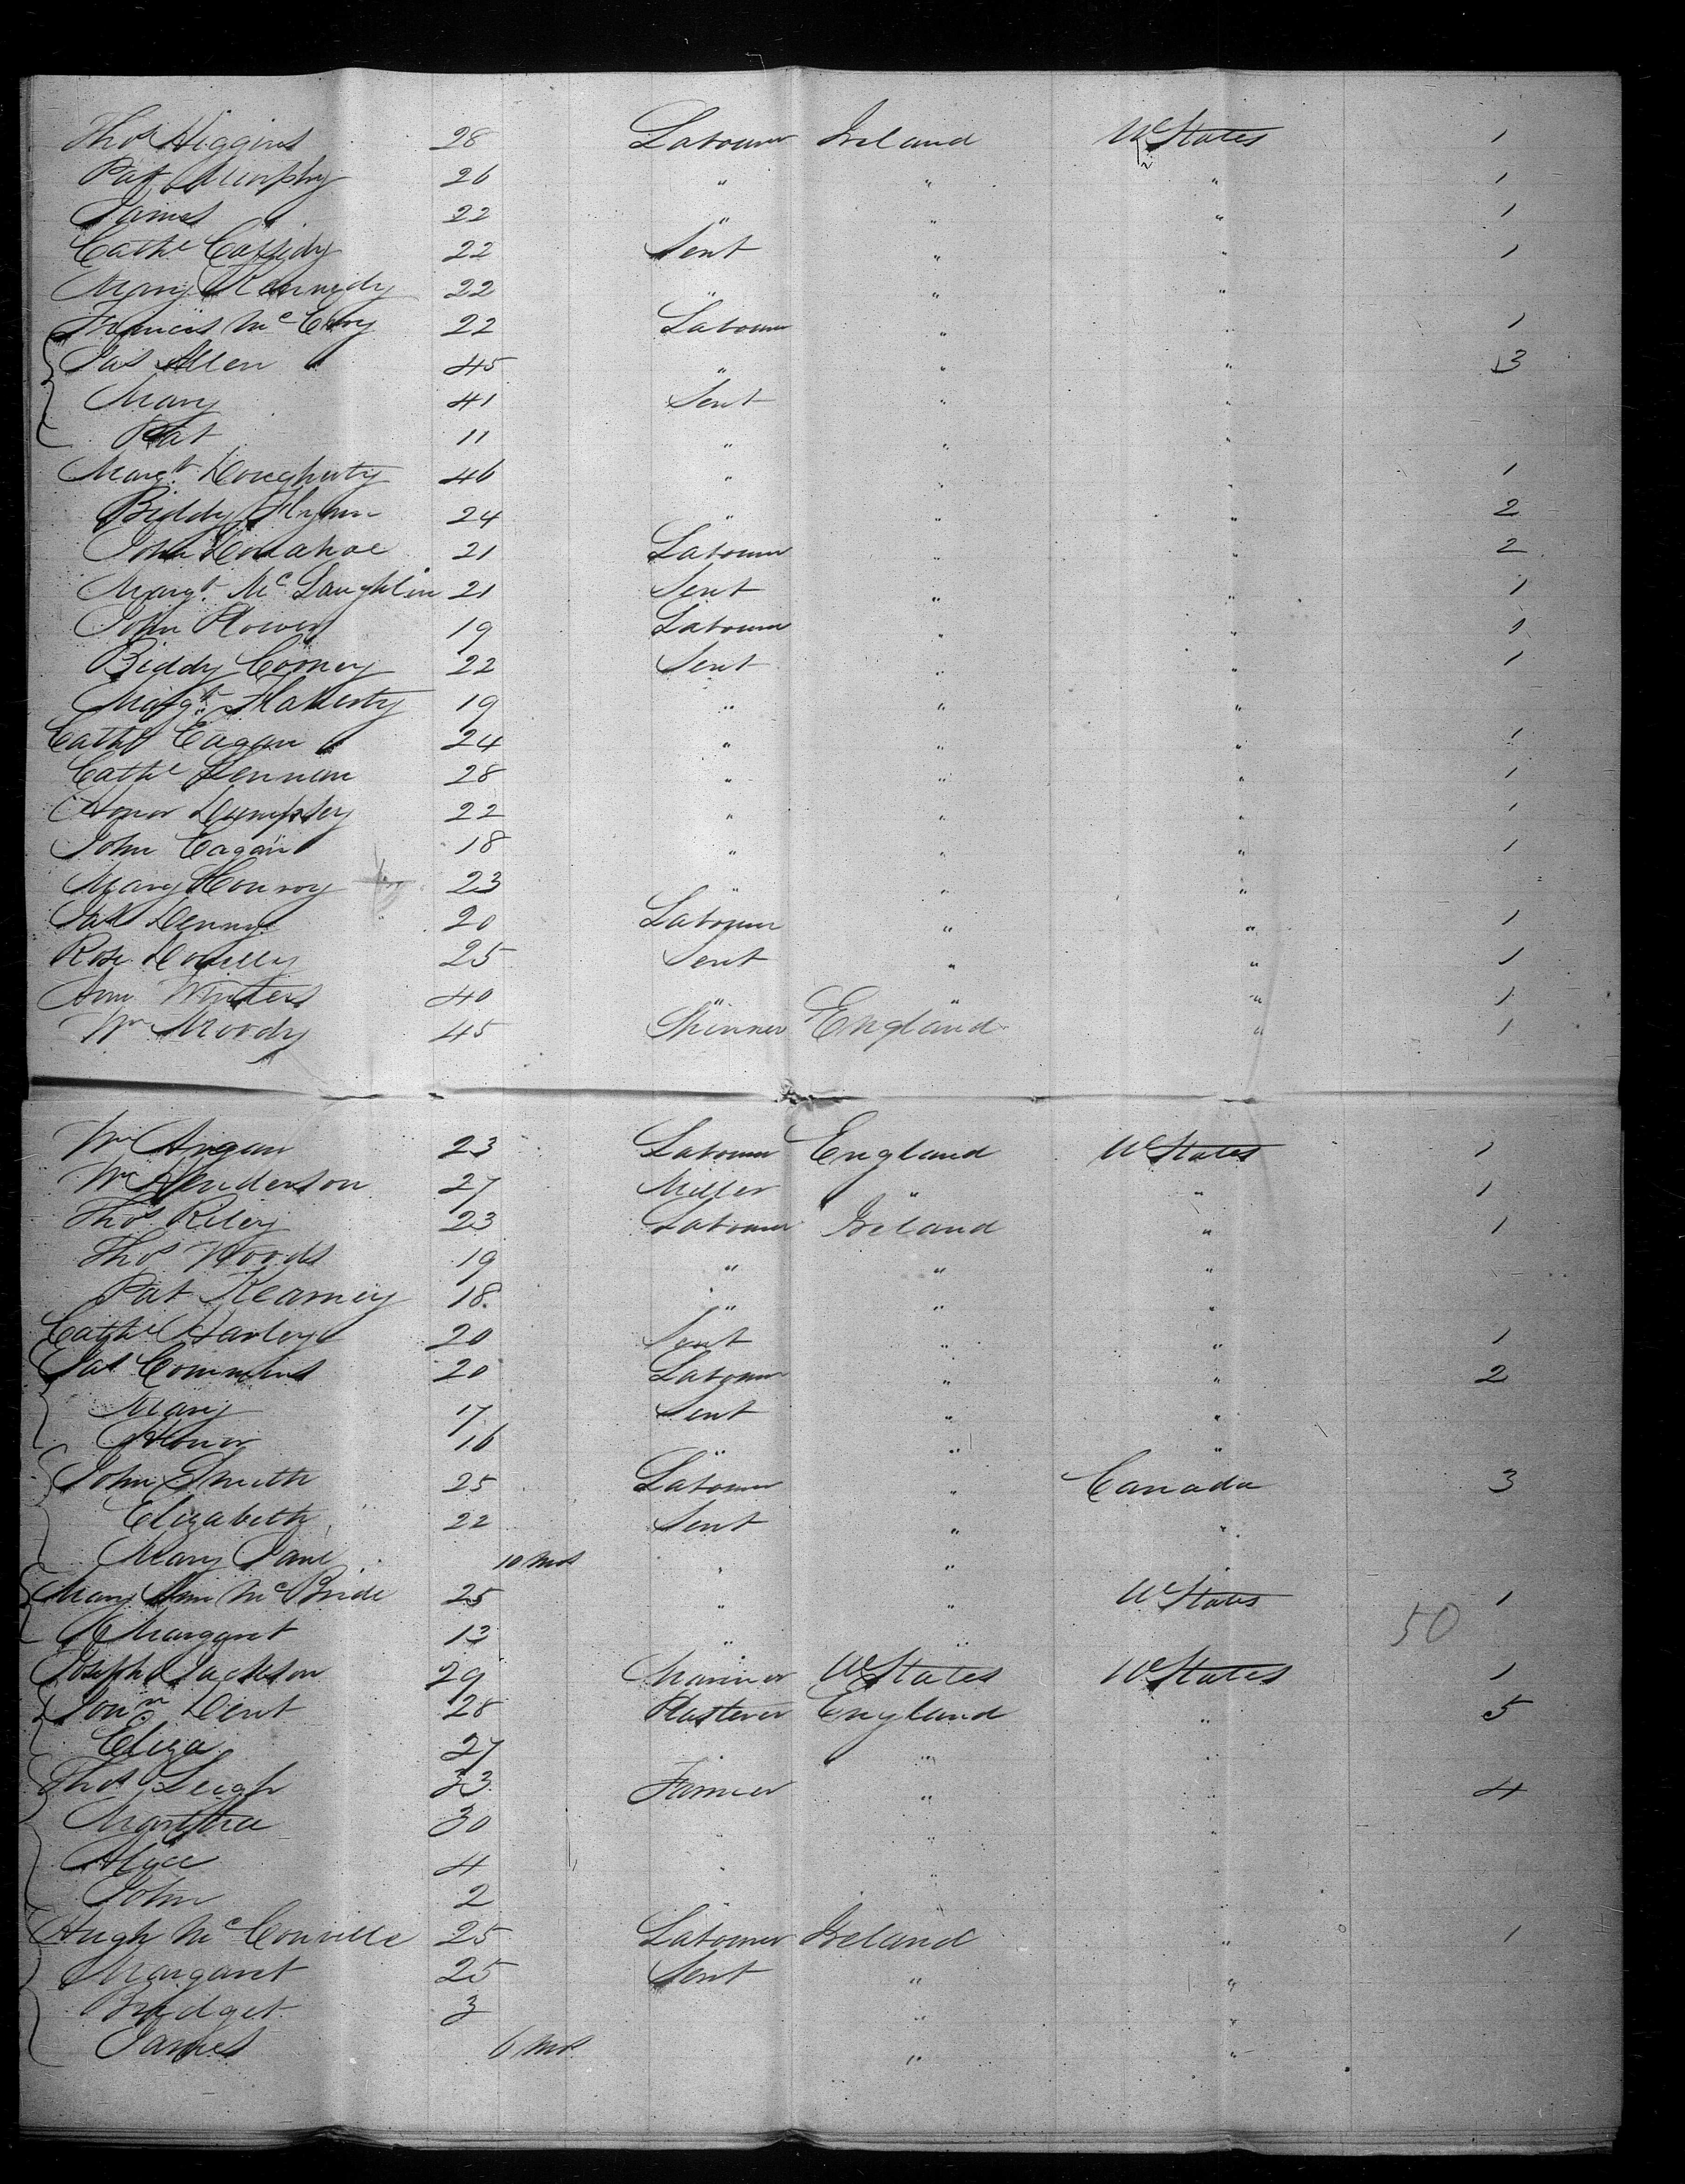 Thos Higgins 28 Labourer Ireland U States 1
Pat Murphy 26 " " " 1
James 22 " " " 1
Cathe Cassidy 22 Sert " " 1
Mary Kennedy 22 " " "
Francis Mc 22 Labourer " " 1
Jas Allen 45 " " " 3
Mary 41 Sert " "
Pat 11 " " "
Margt Dougherty 46 " " " 1
Biddy Flynn 24 " " " 2
John Donahoe 21 Labourer " " 2
Margt McLaughlin 21 Sert " " 1
John Power 19 Labourer " " 1
Biddy Cooney 22 Sert " " 1
Margt Flaherty 19 " " "
Cathe Eagan 24 " " " 1
Cathe Lennan 28 " " " 1
Honor Dempsey 22 " " " 1
John Eagan 18 " " " 1
Mary Conroy 23 " " "
Denny 20 Labourer " " 1
Rose Donelly 25 Sert " " 1
Ann Winters 40 " " " 1
Wm Moody 45 Skinner England " 1
Wm 23 Labourer England U States 1
Wm Henderson 27 Miller " " 1
Thos Riley 23 Labourer Ireland " 1
Thos Woods 19 " " "
Pat Kearney 18 " " "
Cathe Hanley 20 Sert " " 1
Commins 20 Labourer " " 2
Mary 17 Sert " "
Honor 16 " " "
John Smith 25 Labourer " Canada 3
Elizabeth 22 Sert " "
Mary Jane 10 Mos " " "
Mary Ann McBride 25 " " U States 1
Margaret 13 " " 50
Joseph Jackson 29 Mariner U States U States 1
Jonn Dent 28 Plasterer England " 5
Eliza 27 " " "
Thos Leigh 33 Farmer " " 4
Martha 30 " " "
Alice 4 " " "
John 2 " "
Hugh McConville 25 Labourer Ireland " 1
Margaret 25 Sert " "
Bridget 3 " "
James 6 Mos " "